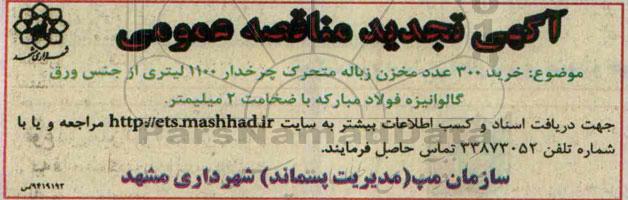 آگهی تجدید مناقصه عمومی
شهرداری مشهد
موضوع: خرید ۳۰۰ عدد مخزن زباله متحرک چرخدار ۱۱۰۰ لیتری از جنس ورق
گالوانیزه فولاد مبارکه با ضخامت ۲ میلیمتر.
جهت دریافت اسناد و کسب اطلاعات بیشتر به سایت http://ets.mashhad.ir مراجعه و یا با
شماره تلفن ۳۳۸۷۳۰۵۲ تماس حاصل فرمایند.
سازمان مپ(مدیریت پسماند) شهرداری مشهد
۹۴۱۹۱۹۲/س
ParsNamadData